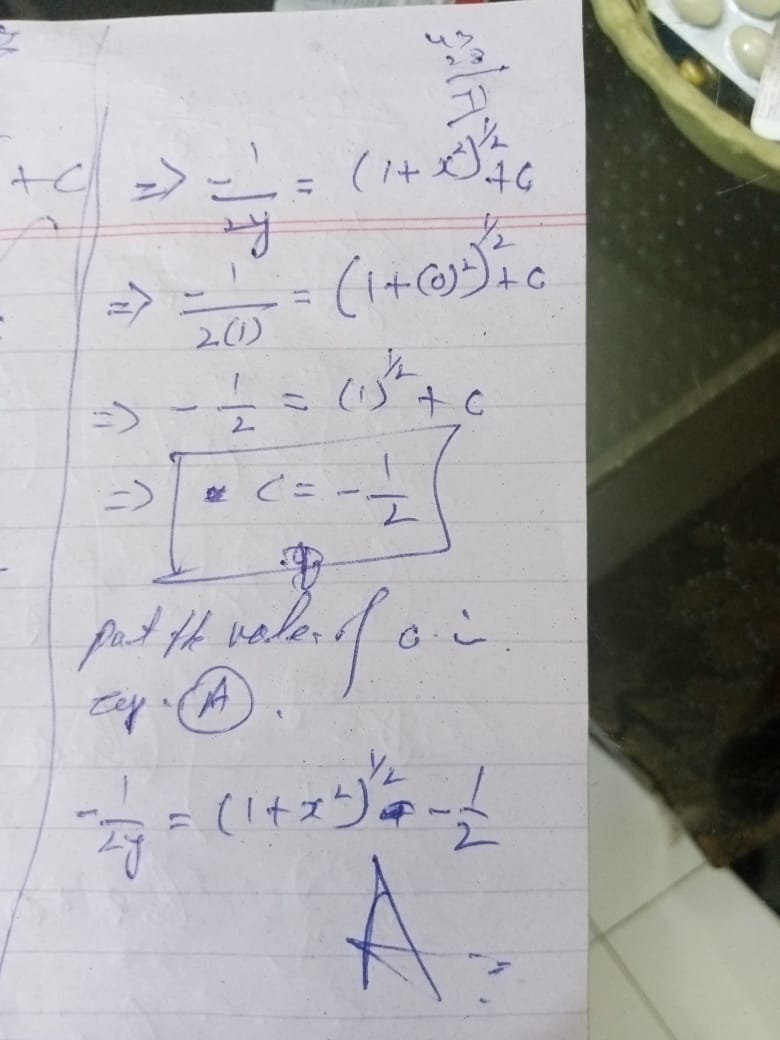 + C
=> -1/2y = (1 + x²)^1/2 + C
=> -1/2(1) = (1+(0)²)^1/2 + C
=> -1/2 = (1)^1/2 + C
=> C = -1/2
put the value of c in
eq. (A).
-1/2y = (1+x²)^1/2 - 1/2
A